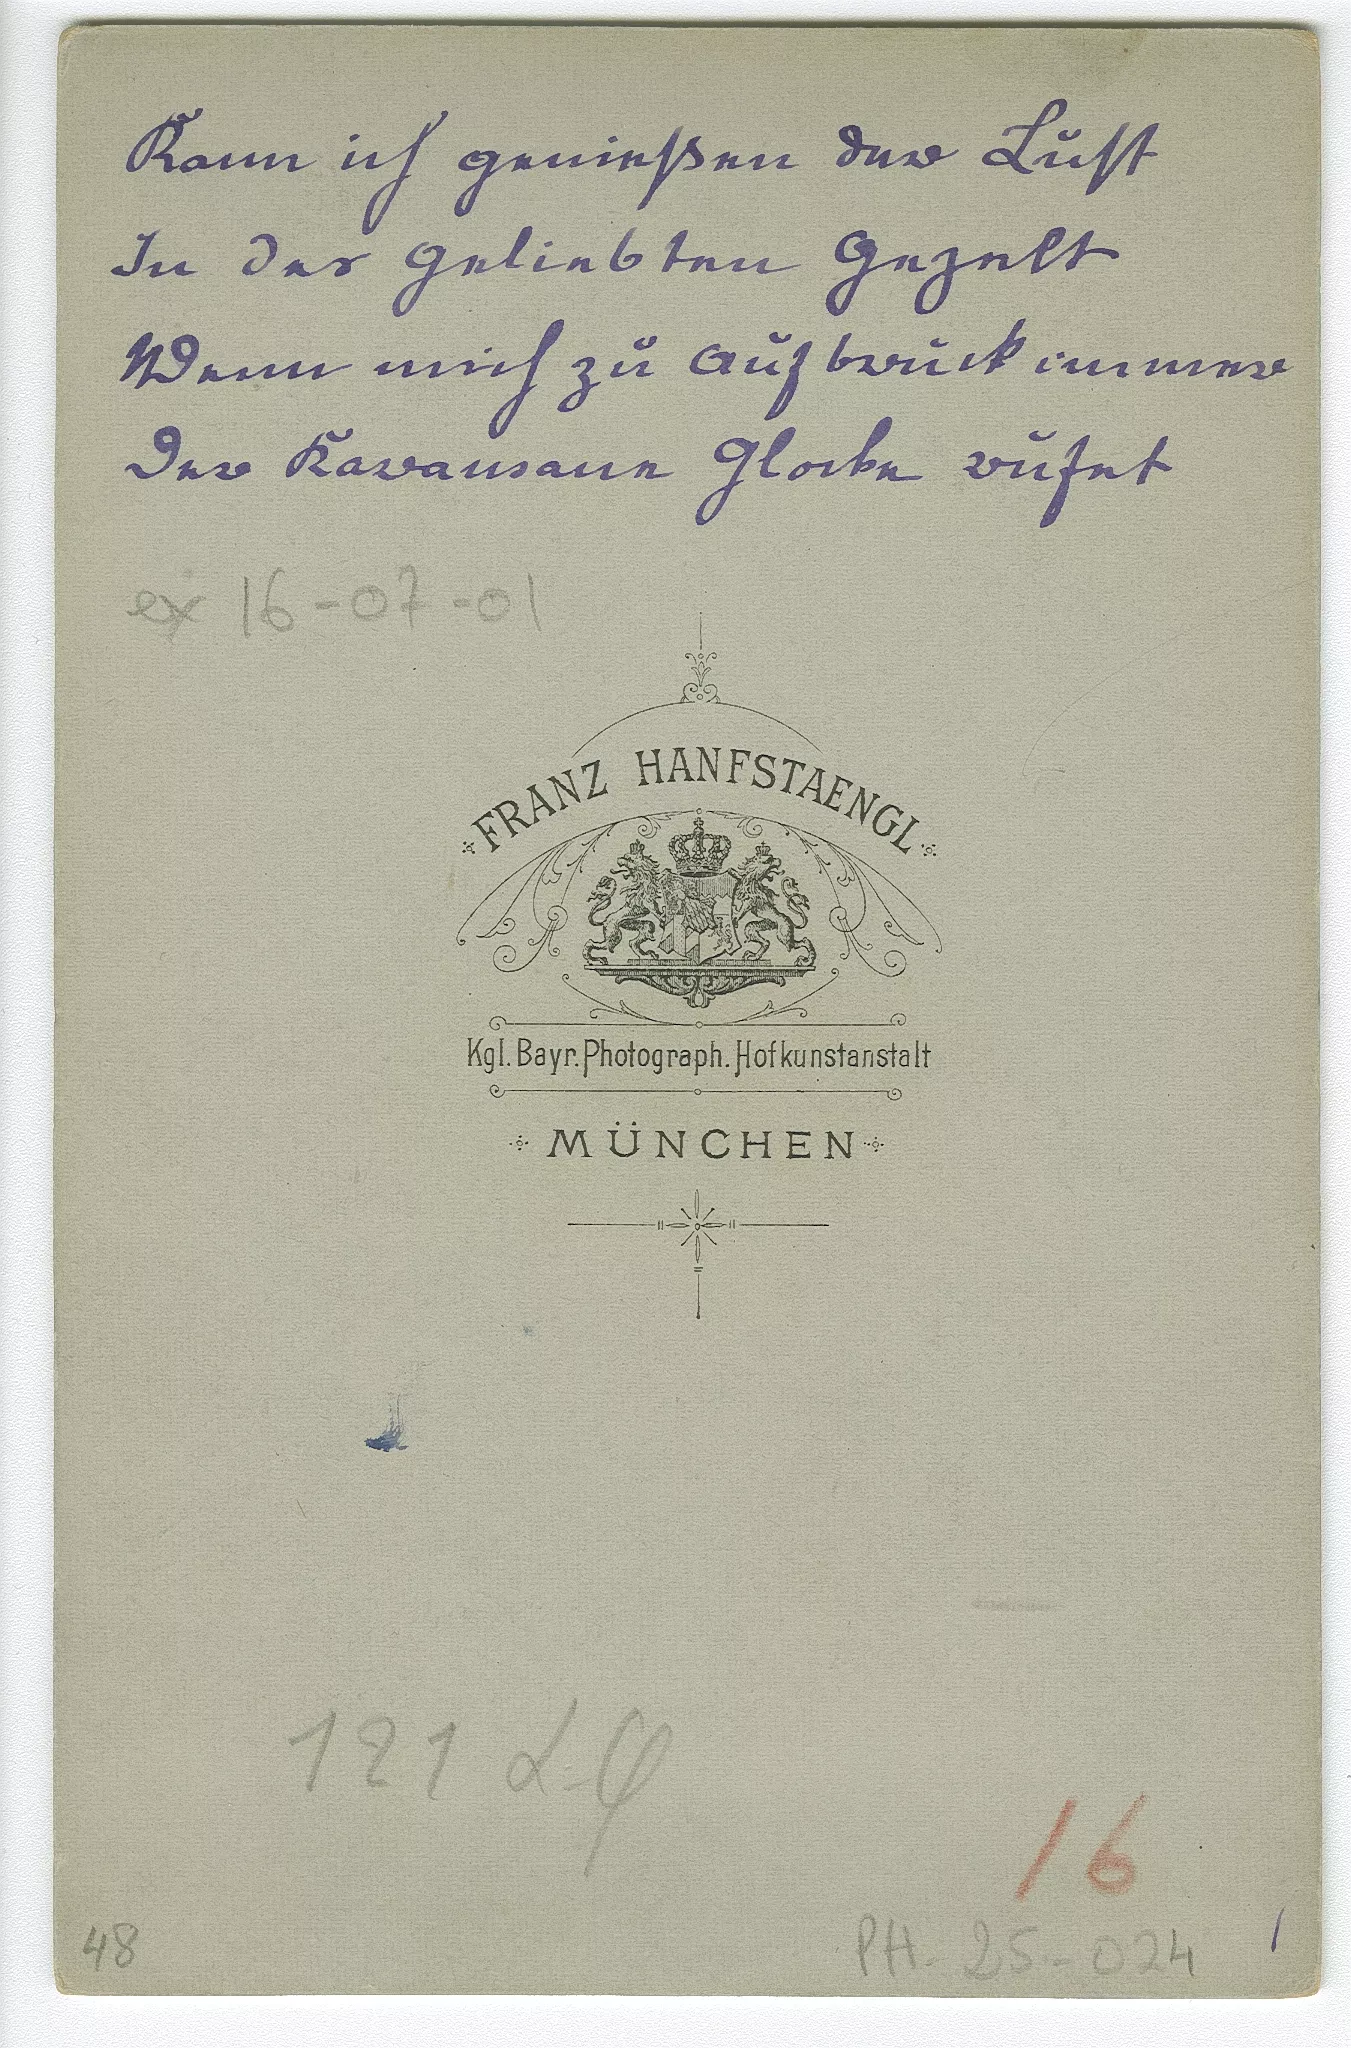 Kann ich genießen der Lust
In der Geliebten Gezelt
Wenn mich zu Aufbruck immer
Der Karawane Glocke rufet
ex 16-07-01
FRANZ HANFSTAENGL
Kgl. Bayr. Photograph. Hofkunstanstalt
MÜNCHEN
121
16
48
PH-25-024
1